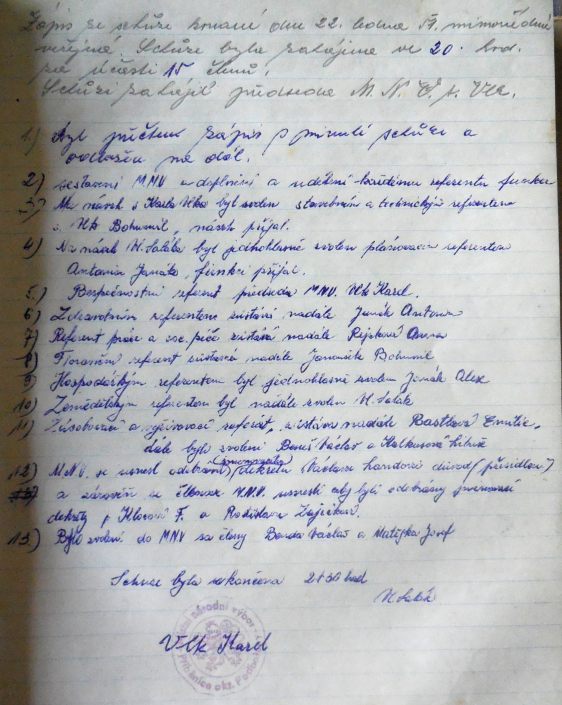 Zápis ze schůze konané dne 22. ledna 51. mimořádné
veřejné. Schůze byla zahájena ve 20. hod.
za účasti 15 členů.
Schůzi zahájil předseda M. N. V. s. Vlk.
1) Byl přečten zápis z minulé schůze a
odložen na dál.
2) sestavení MNV a doplnění a udělení každému referentu funkce
3) Na návrh s Karla Vlka byl zvolen stavebním a technickým referentem
s. Vlk Bohumil, návrh přijal.
4) Na návrh H. Saláka byl jednohlasně zvolen plánovacím referentem
Antonín Janák, funkci přijal.
5.) Bezpečnostní referent předseda MNV. Vlk Karel.
6) Zdravotním referentem zůstává nadále Janák Antonín
7) Referent práce a soc. péče zůstává nadále Anna
8) referent zůstává nadále Bohumil
9) Hospodářským referentem byl jednohlasně zvolen Janák Alex
10) Zemědělským referentem byl nadále zvolen H. Salák
11) Zásobovací a vyživovací referát, zůstává nadále Emilie,
dále byli zvoleni Beneš Václav a
12) M.N.V. se usnesl odebrání dekretu Václavu důvod (přesídlení)
a zároveň se členové M.N.V. usnesli aby byli odebrány
dekrety p. F. a Rostislava
13) Byli zvoleni do MNV za členy Benda Václav a Matějka Josef
Schůze byla zakončena 2130 hod
H. Salák
Vlk Karel
národní výbor